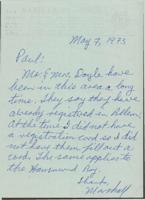 May 7, 1973
Paul:
Mr. & Mrs. Doyle have
been in this area a long
time. They say they have
already registered in
At the time I did not have
a registration card so I did
not have them fill out a
card. The same applies to
the
Thanks,
Marshall